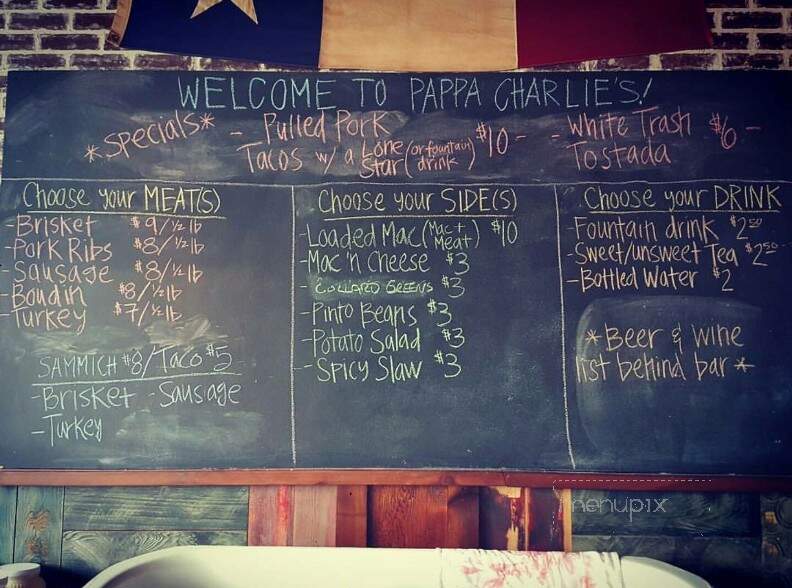 WELCOME TO PAPPA CHARLIE'S!
*Specials* - Pulled Pork
Tacos w/ a Lone Star (or fountain drink) $10 -
- White Trash
Tostada $6 -
Choose your MEAT(S)
-Brisket $9/½lb
-Pork Ribs $8/½lb
-Sausage $8/½lb
-Boudin $8/½lb
-Turkey $7/½lb
SAMMICH $8/Taco $5
-Brisket -Sausage
-Turkey
Choose your SIDE(S)
-Loaded Mac (Mac + Meat) $10
-Mac 'n Cheese $3
-COLLARD GREENS $3
-Pinto Beans $3
-Potato Salad $3
-Spicy Slaw $3
Choose your DRINK
-Fountain drink $2.50
-Sweet/unsweet Tea $2.50
-Bottled Water $2
*Beer & wine
list behind bar*
menupix